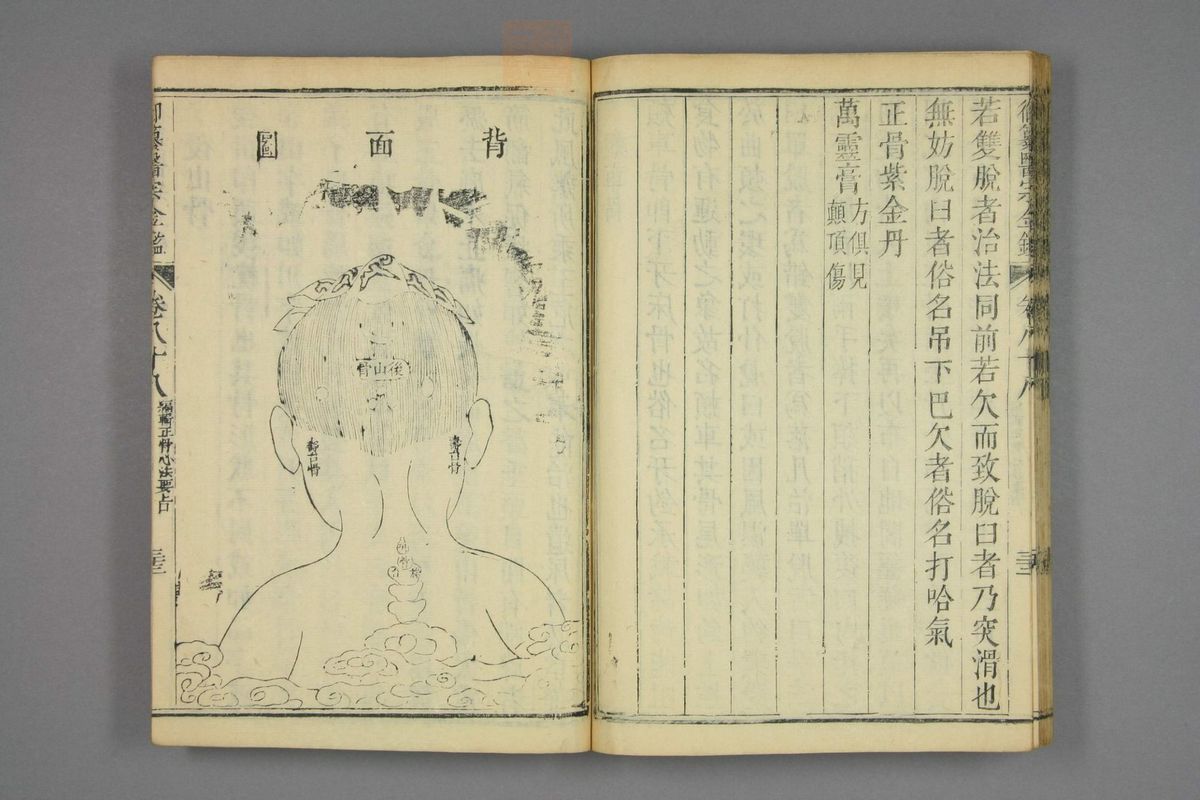 若雙脫者治法同前若欠而致脫臼者乃突滑也
無妨脫臼者俗名吊下巴欠者俗名打哈氣
正骨紫金丹
萬靈膏方俱見
顛頂傷
御纂醫宗金鑑
卷八十八
背面圖
後山骨
壽台骨
壽台骨
御纂醫宗金鑑
卷八十八
編輯正骨心法要旨